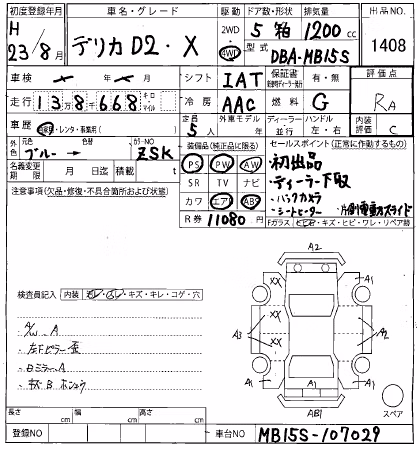 初度登録年月 車名・グレード 駆動 ドア数・形状 排気量 出品NO.
H 23/8月 デリカD2・X 2WD 4WD 5 箱 1200 cc 1408
型式 DBA-MB15S
車検 年 月 シフト IAT 保証書 有・無 評価点
走行 13万8千668 キロ マイル 冷房 AAC 燃料 G RA
車歴 自家用・レンタ・事業用( ) 定員 5人 外車モデル 年 ディーラー 並行 ハンドル 左・右 内装評価 C
外色 元色 ブルー 色替 カラーNO ZSK 装備品(純正品に限る) セールスポイント(正常に作動するもの)
名義変更期限 月 日迄 積載 t PS PW AW ・初出品
注意事項(欠品・修復・不具合箇所および状態) SR TV ナビ ・ディーラー下取
カワ エアB ABS ・バックカメラ
R券 11080円 ・シートヒーター ・片側電動スライド
Fガラス ヒビ石・キズ・ヒビ・ワレ・リペア替
検査員記入 内装 ヨゴレ・スレ・キズ・キレ・コゲ・穴
A/W A
・左Fピラー歪
・ロミラーA
・キズB ホシュウ
A2
A1 A1
XX XX
A3 A2
XX
A1 A1 A1
AB1
スペア
長さ cm 幅 cm 高さ cm
登録NO 車台NO MB15S-107029